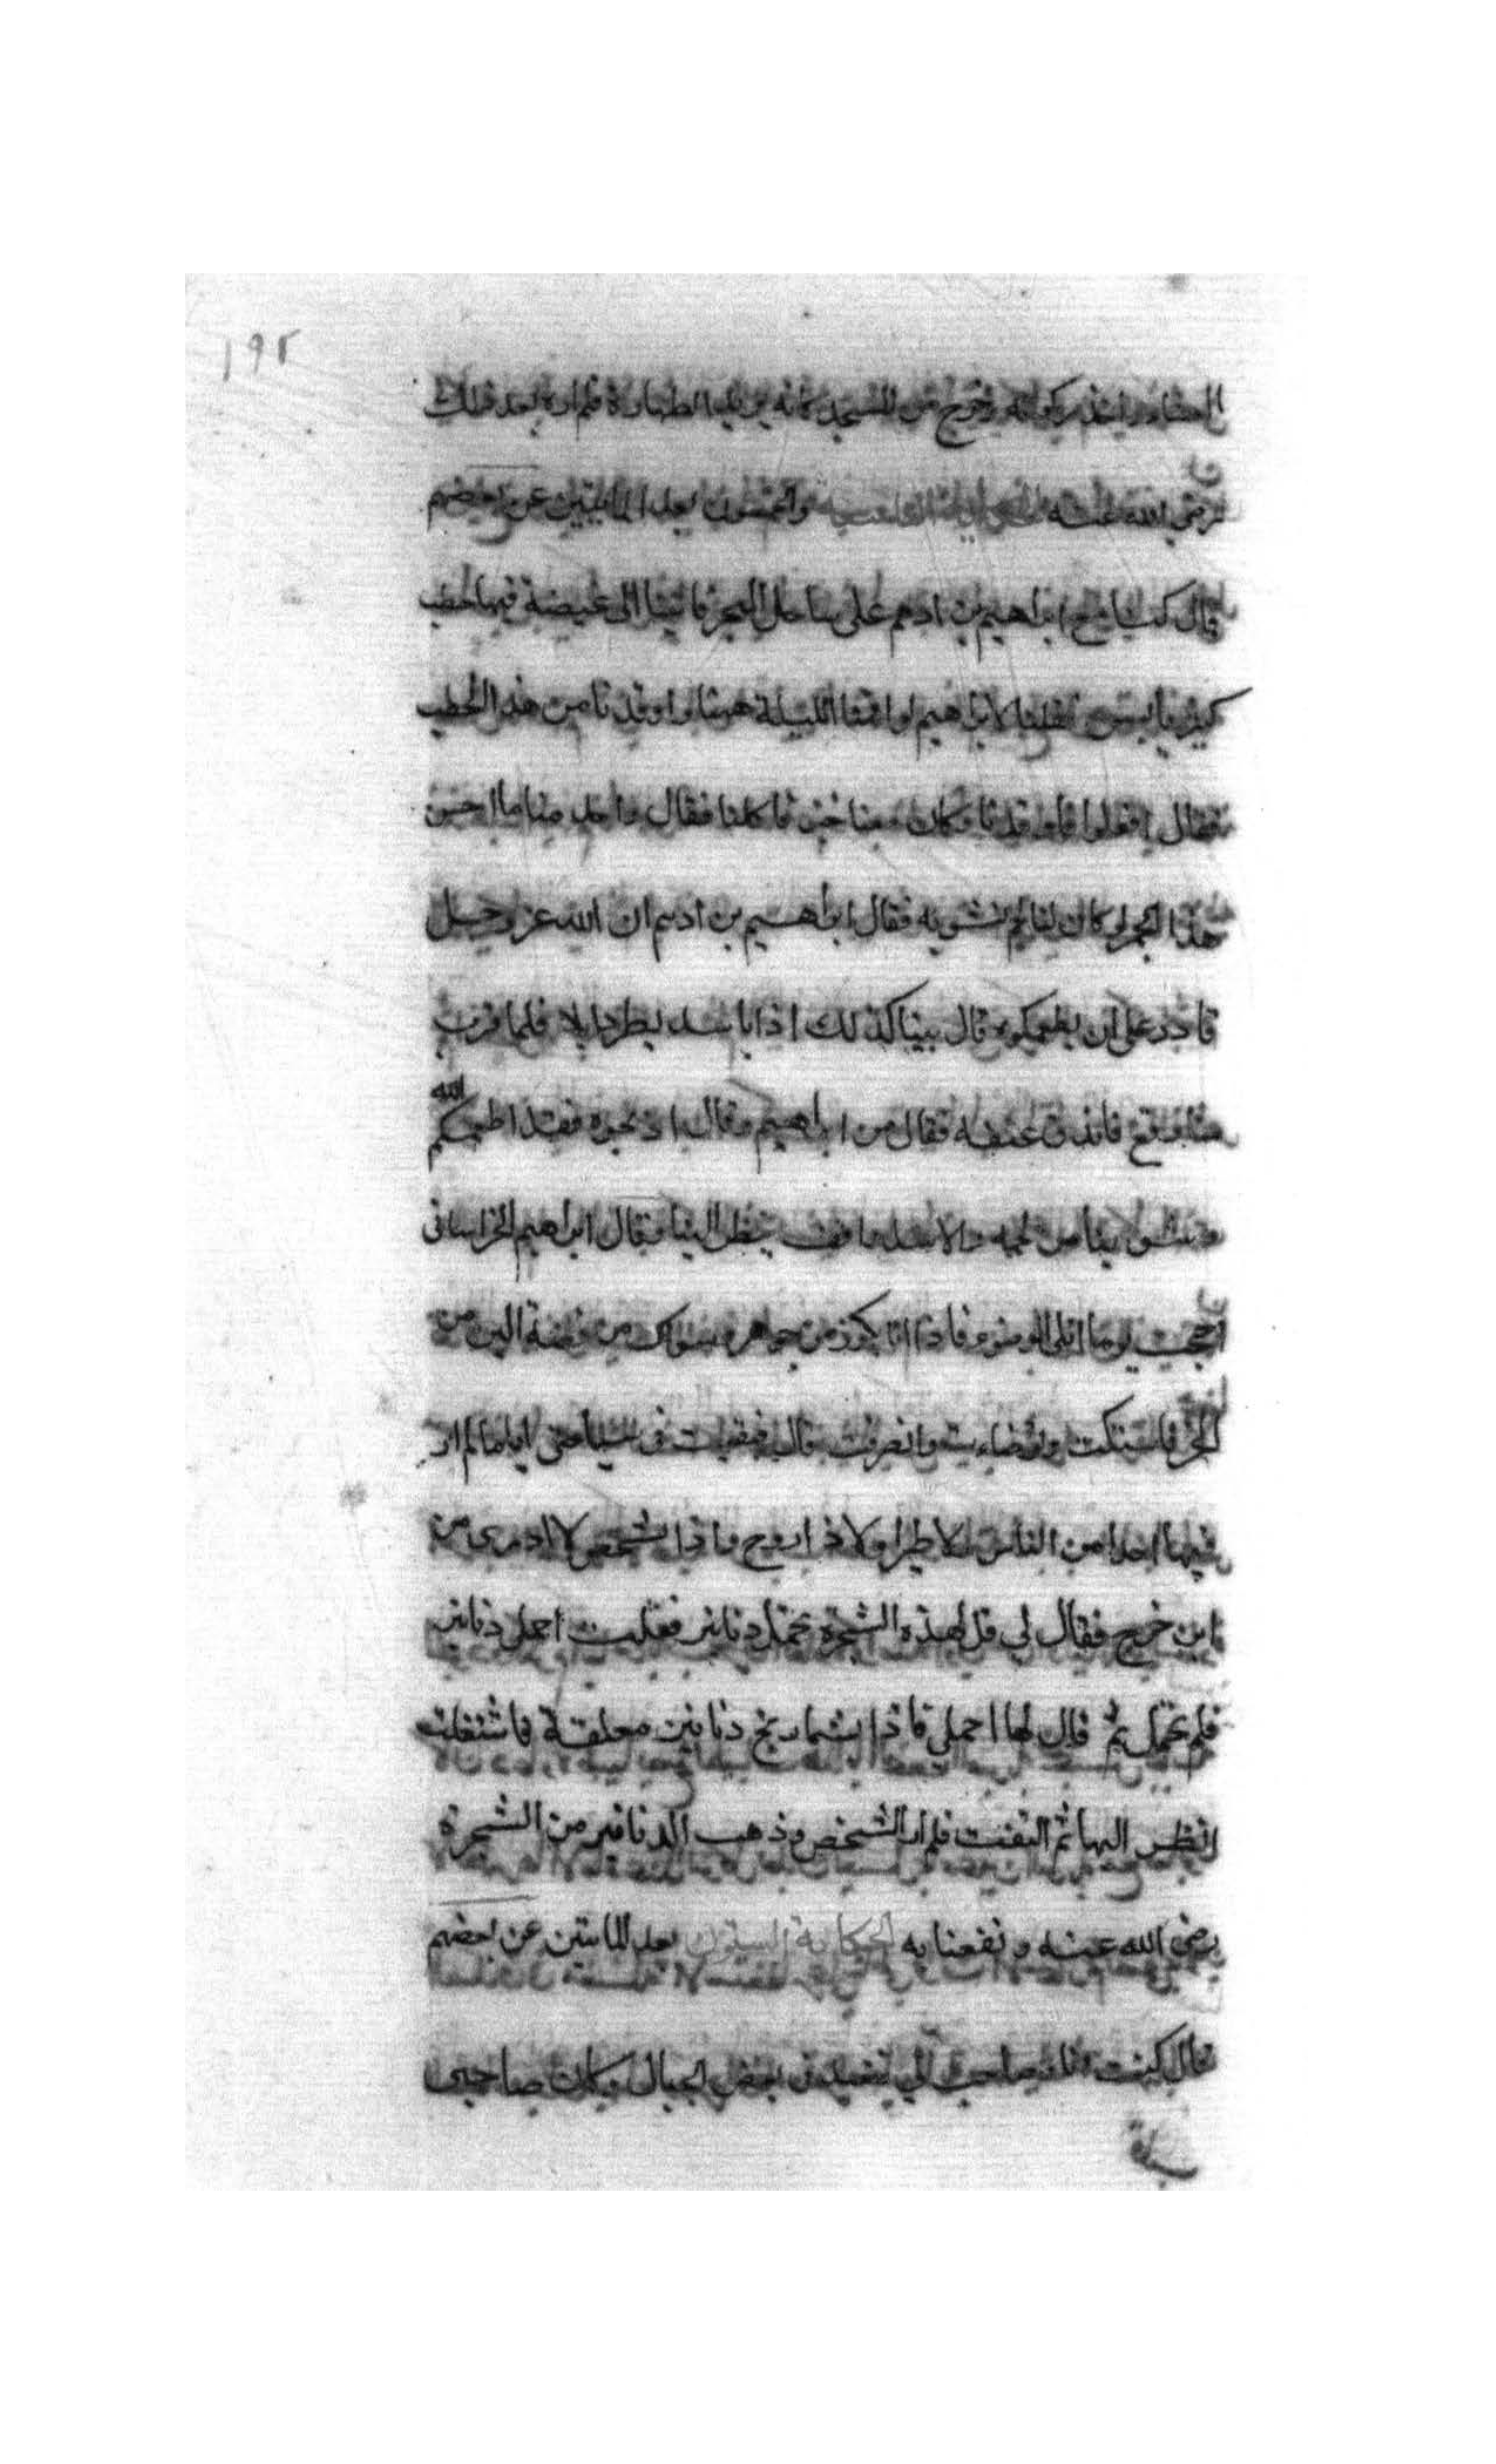 ١٩٢
العشاء واخذ ركوته وخرج من المسجد كانه يريد الطهارة فلم اره بعد ذلك
رضي الله عنه الحكاية التاسعة والخمسون بعد المايتين عن بعضهم
قال كنا مع ابراهيم بن ادهم على ساحل البحر فاتينا الى غيضة فيها حطب
كثير يابس فقلنا لابراهيم لو اقمنا الليلة هنا واوقدنا من هذا الحطب
فقال افعلوا فاوقدنا وكان معنا خبز فاكلنا فقال واحد منا ما احسن
هذا الجمر لو كان لنا لحم نشويه فقال ابراهيم بن ادهم ان الله عز وجل
قادر على ان يطعمكوه قال بينا كذلك اذا باسد يطرد ايلا فلما قرب
منا وقع فاندق عنقه فقال من ابراهيم وقال اذبحوه فقد اطعمكم الله
وشوينا من لحمه والاسد واقف ينظر الينا وقال ابراهيم الخراساني
احتجت يوما الى الوضوء فاذا انا بكوز من جواهر وسواك من فضة الين من
الخز فاستكت وتوضاءت وانصرفت قال فبقيت في سياحتي اياما لم ار
فيها احدا من الناس ولا طيرا ولا ذا روح فاذا شخص لا ادري من
اين خرج فقال لي قل لهذه الشجرة تحمل دنانير فقلت احملي دنانير
فلم تحمل ثم قال لها احملي فاذا بشماريخ دنانير معلقة فاشتغلت
انظر اليها ثم التفت فلم ار الشخص وذهب الدنانير من الشجرة
رضي الله عنه ونفعنا به الحكاية الستون بعد المايتين عن بعضهم
قال كنت انا وصاحب لي نتعبد في بعض الجبال وكان صاحبي